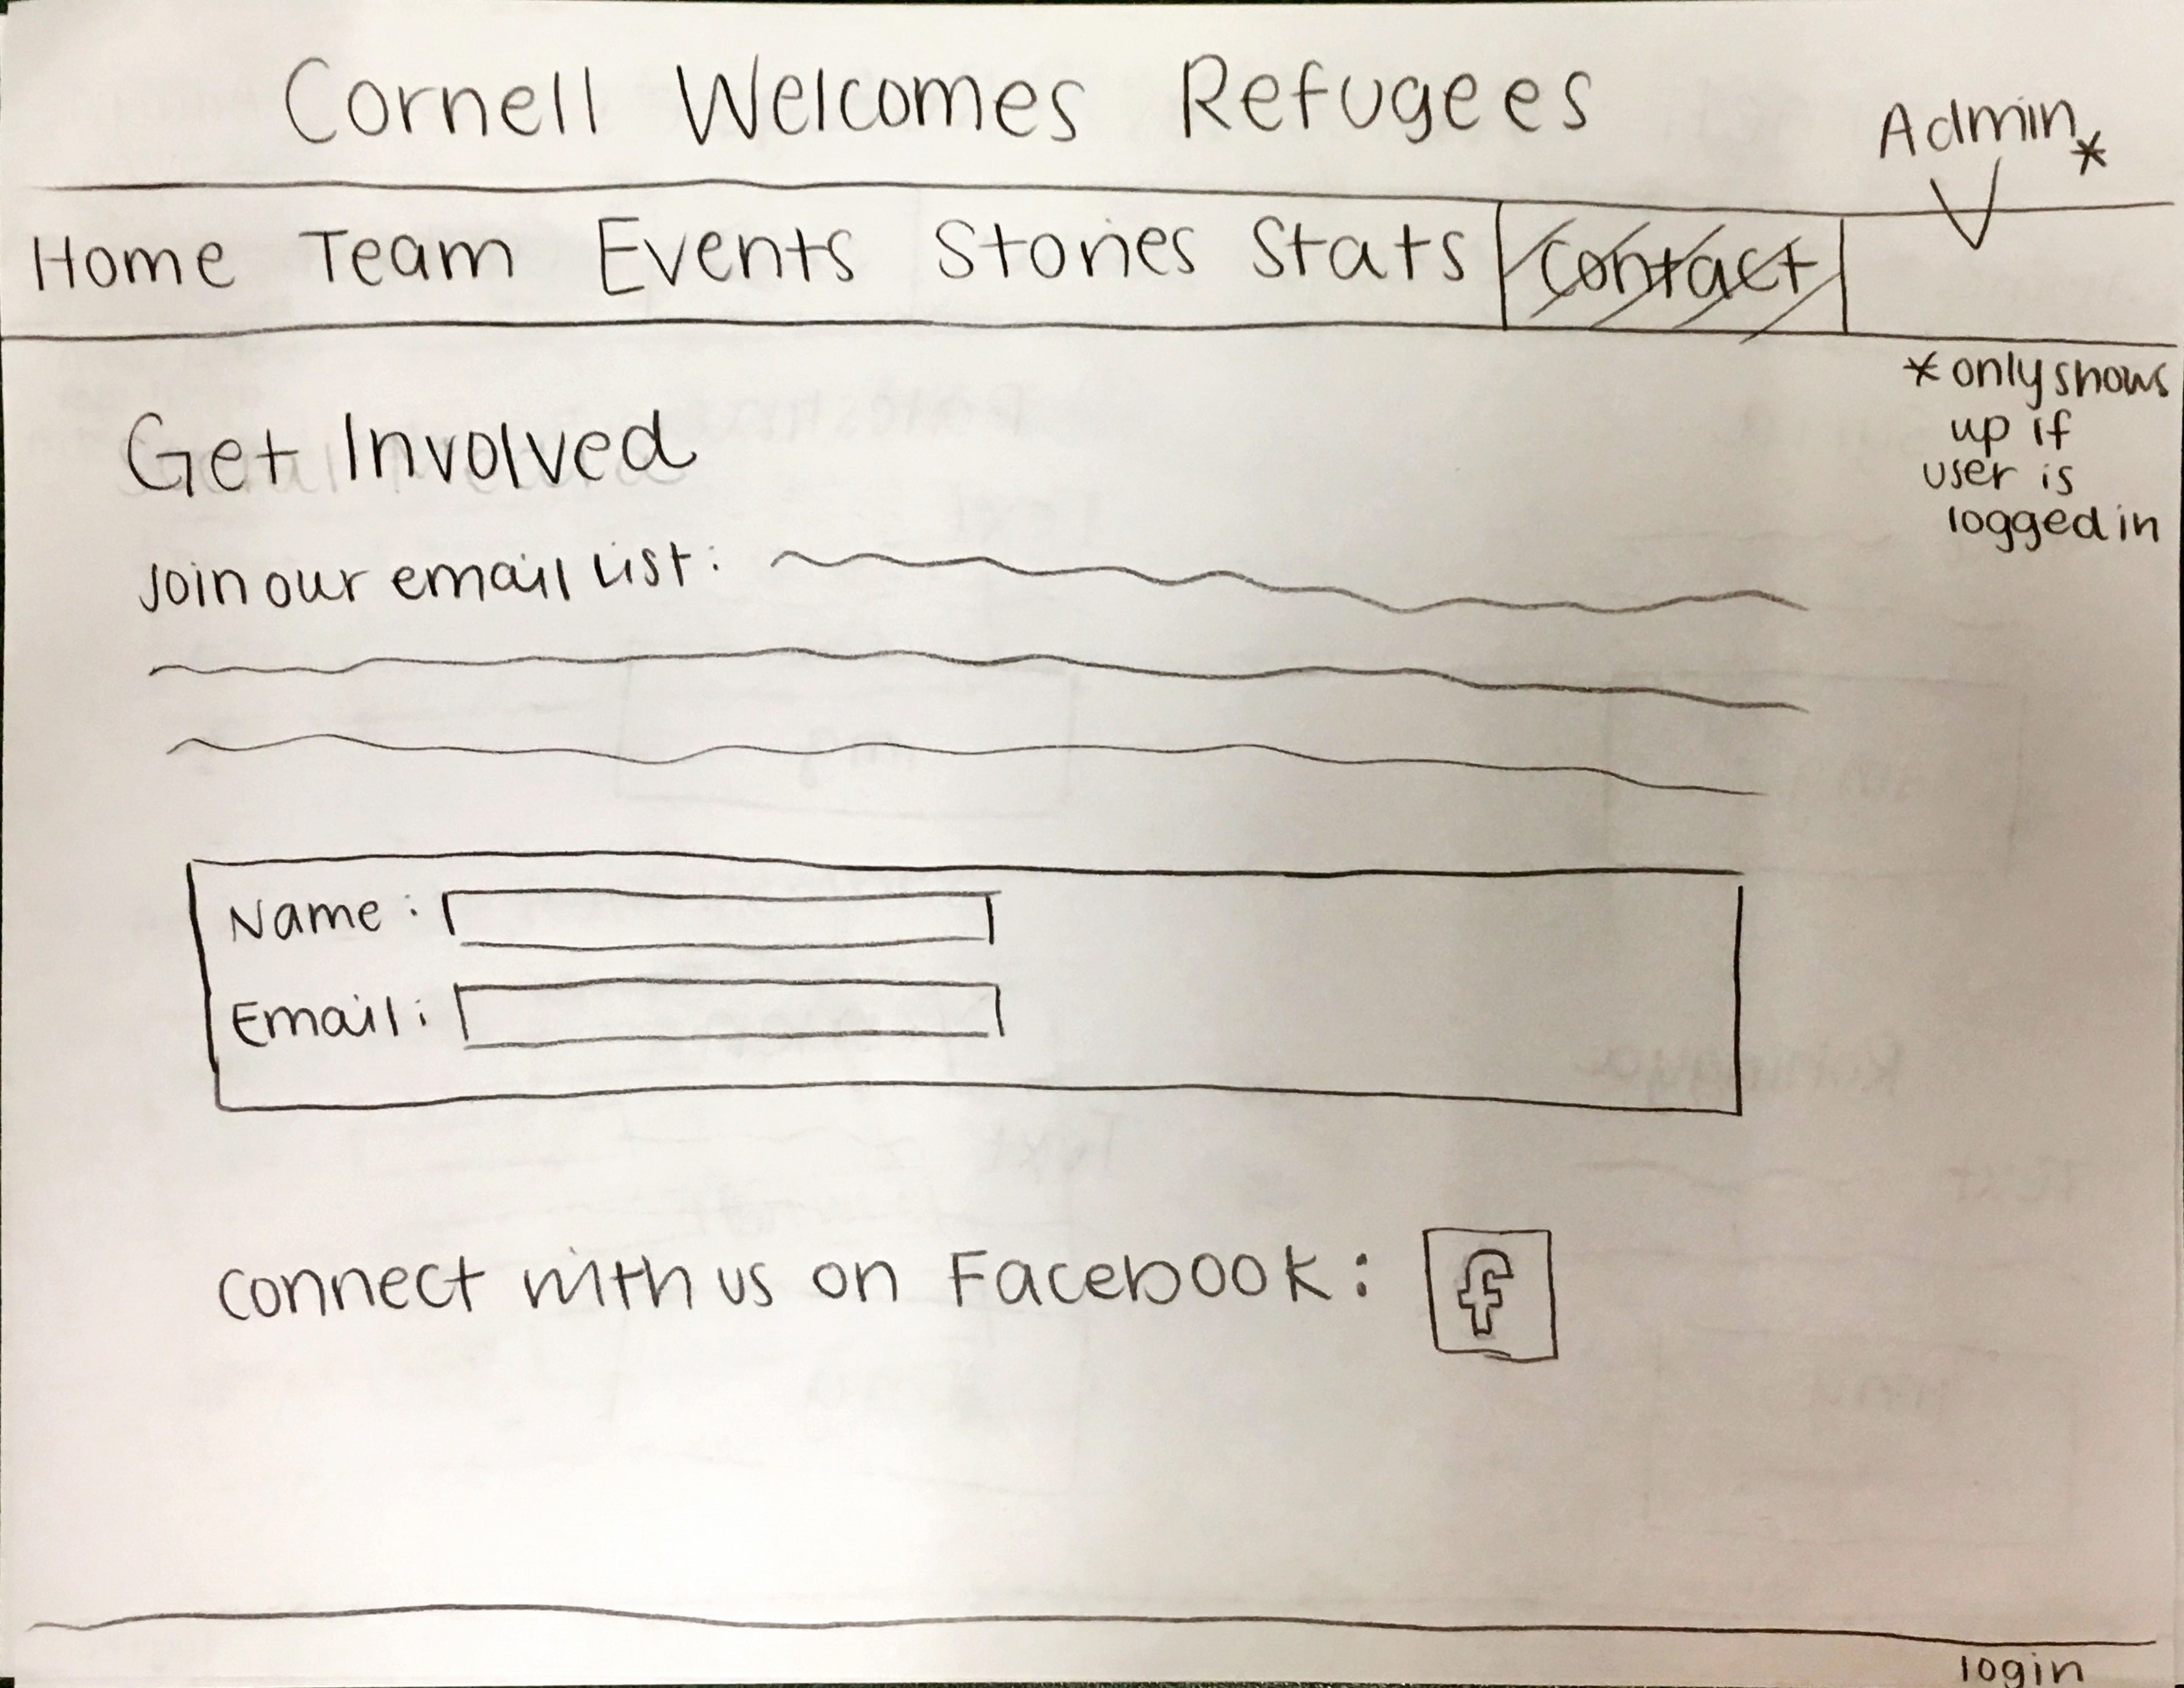 Cornell Welcomes Refugees
Admin*
Home Team Events Stories Stats Contact
*only shows
up if
user is
logged in
Get Involved
Join our email list:
Name:
Email:
connect with us on Facebook: f
login